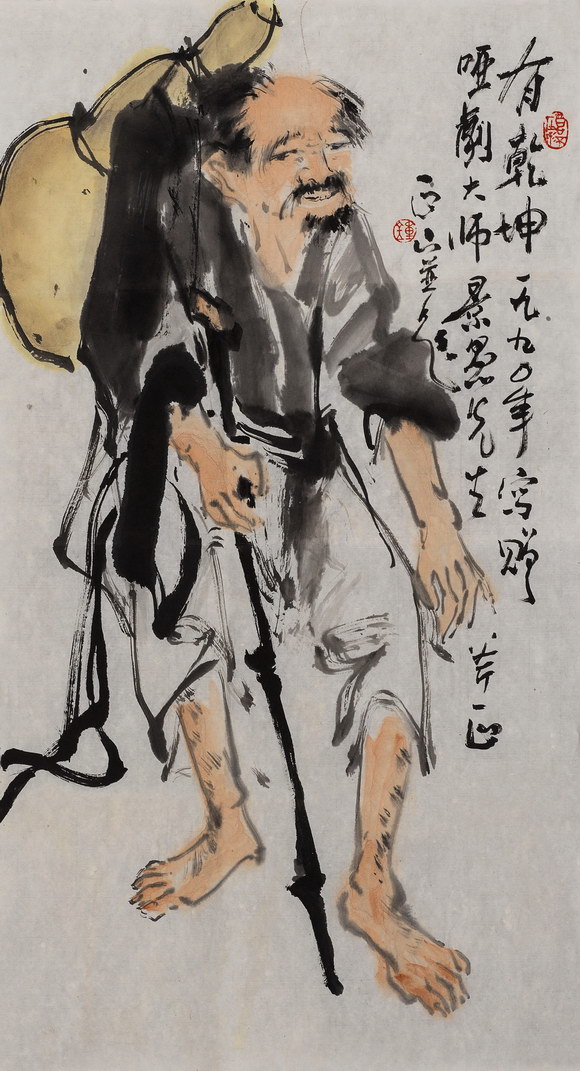 有乾坤一九九〇年写赠
哑剧大师景愚先生斧正
正山並
鍾